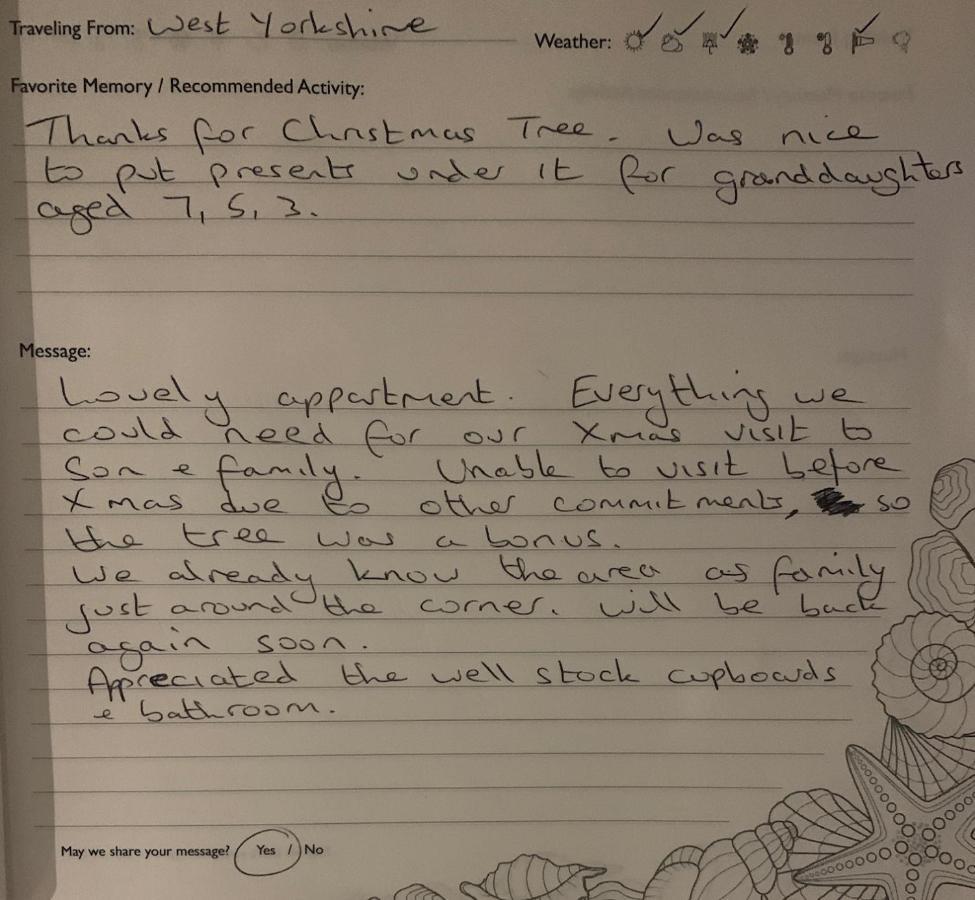 Traveling From: West Yorkshire
Weather:
Favorite Memory / Recommended Activity:
Thanks for Christmas Tree. Was nice
to put presents under it for granddaughters
aged 7, 5, 3.
Message:
Lovely appartment. Everything we
could need for our Xmas visit to
Son & family. Unable to visit before
Xmas due to other commitments, so
the tree was a bonus.
We already know the area as family
just around the corner. Will be back
again soon.
Appreciated the well stock cupboards
& bathroom.
May we share your message? Yes / No